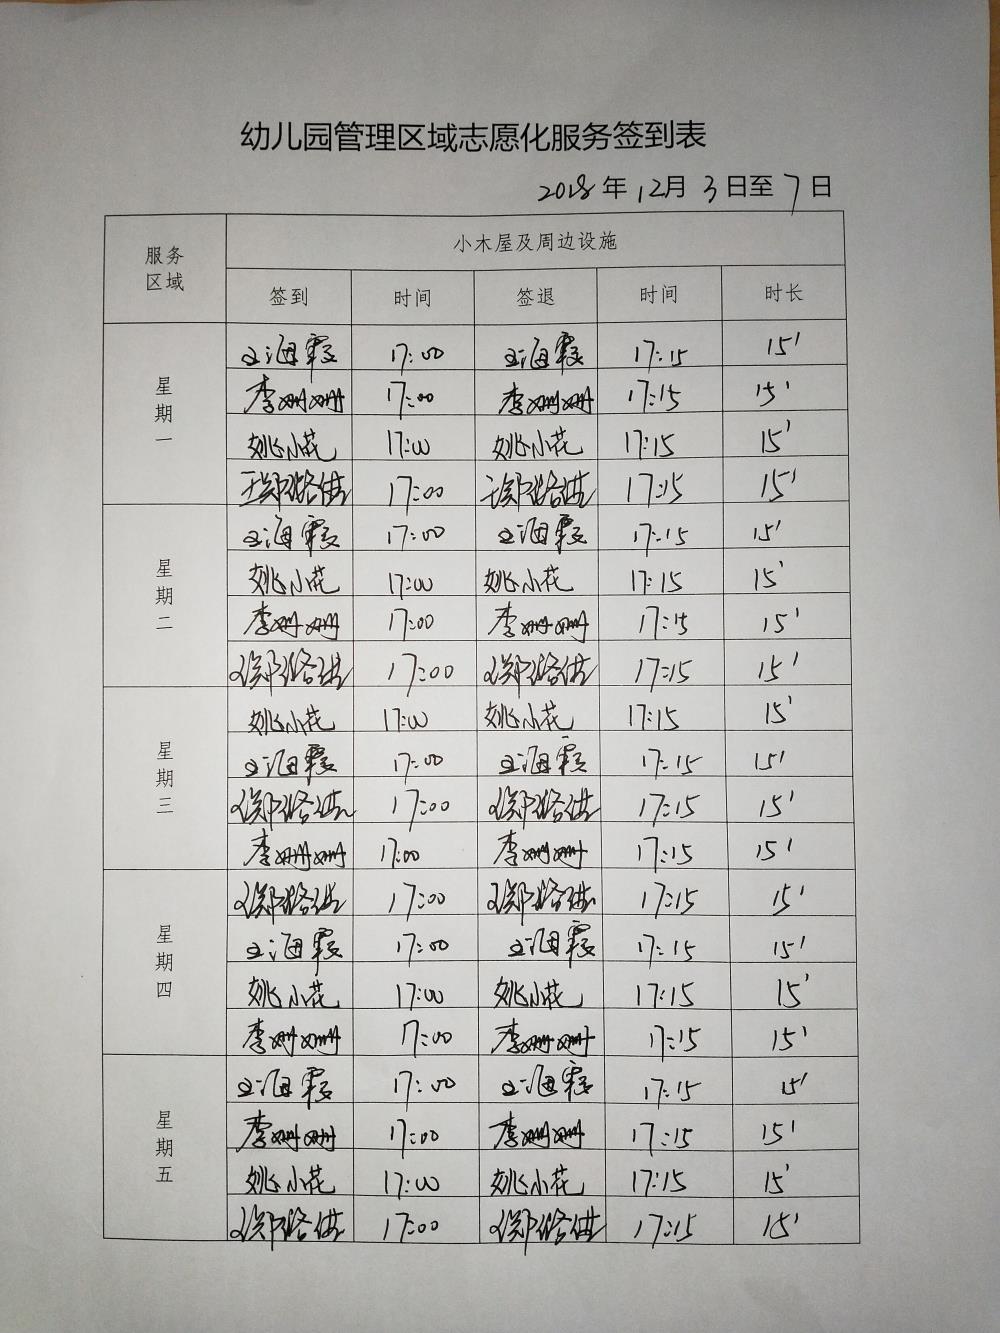 幼儿园管理区域志愿化服务签到表
2018年12月3日至7日
服务区域 小木屋及周边设施
签到 时间 签退 时间 时长
星期一
王海霞 17:00 王海霞 17:15 15'
李姗姗 17:00 李姗姗 17:15 15'
姚小花 17:00 姚小花 17:15 15'
17:00 17:15 15'
星期二
王海霞 17:00 王海霞 17:15 15'
姚小花 17:00 姚小花 17:15 15'
李姗姗 17:00 李姗姗 17:15 15'
17:00 17:15 15'
星期三
姚小花 17:00 姚小花 17:15 15'
王海霞 17:00 王海霞 17:15 15'
17:00 17:15 15'
李姗姗 17:00 李姗姗 17:15 15'
星期四
17:00 17:15 15'
王海霞 17:00 王海霞 17:15 15'
姚小花 17:00 姚小花 17:15 15'
李姗姗 17:00 李姗姗 17:15 15'
星期五
王海霞 17:00 王海霞 17:15 15'
李姗姗 17:00 李姗姗 17:15 15'
姚小花 17:00 姚小花 17:15 15'
17:00 17:15 15'